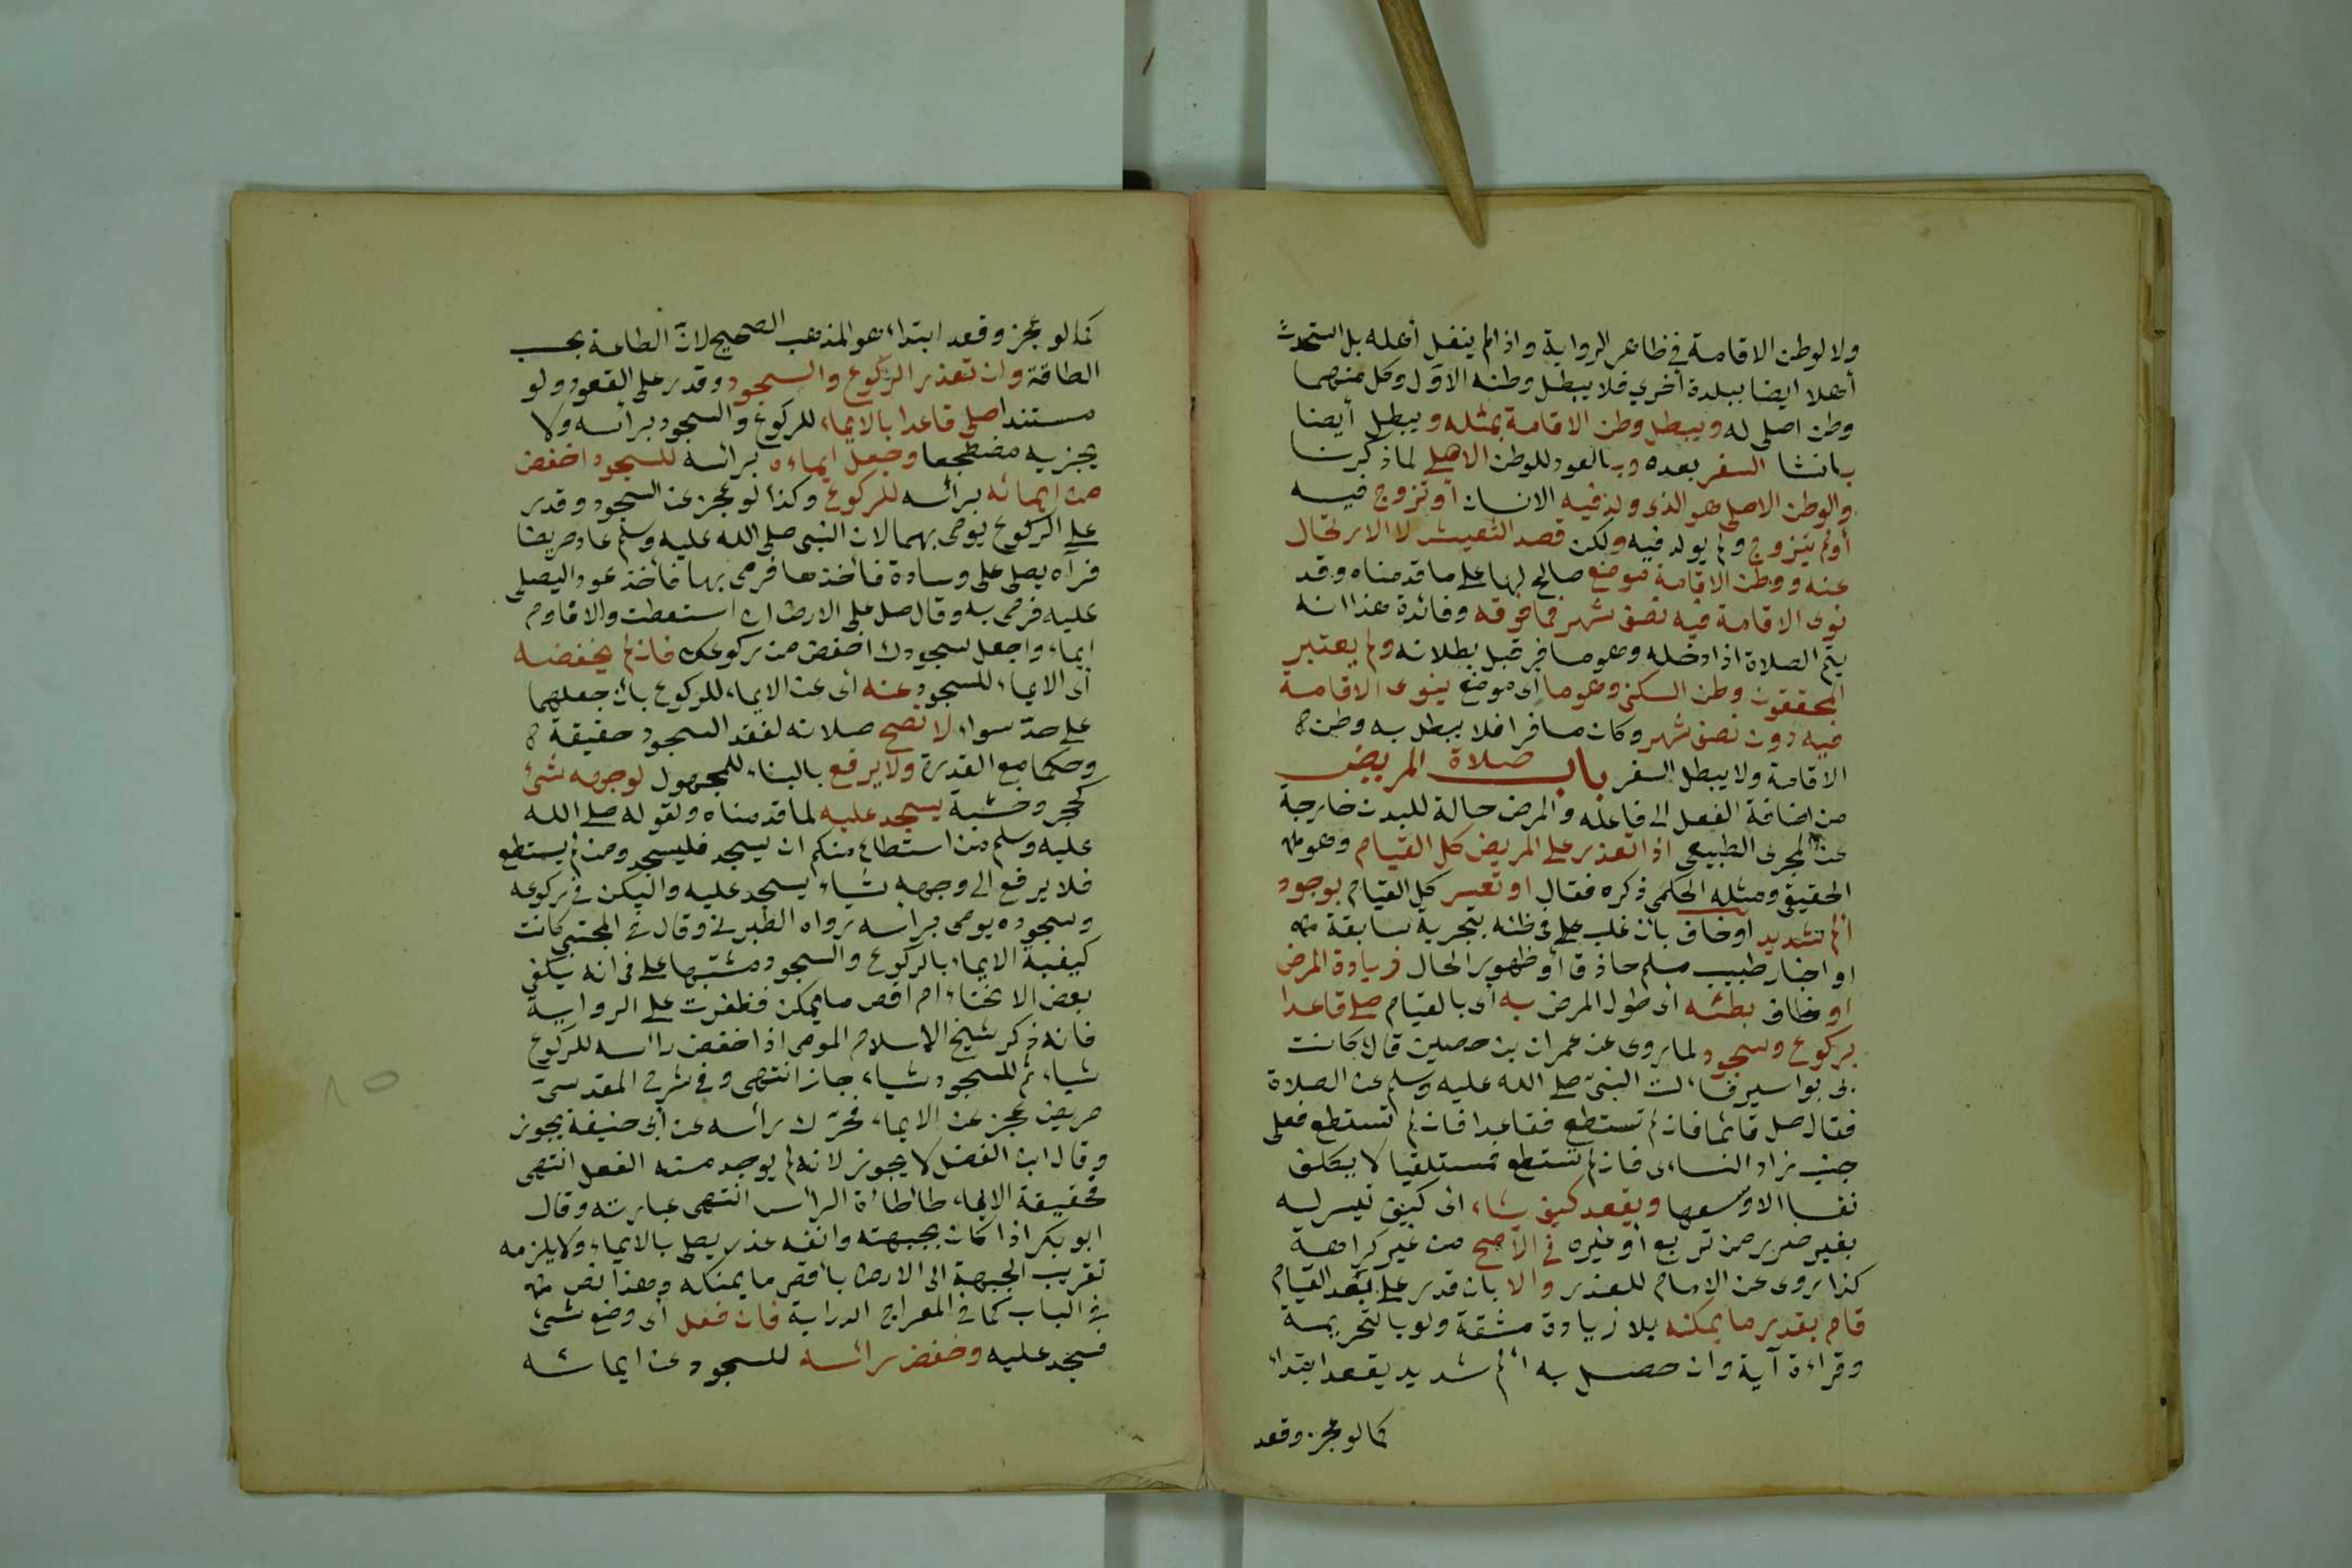 ولا لوطن الاقامة في ظاهر الرواية واذا لم ينقل أهله بل استحدث
أهلا ايضا ببلدة أخري فلا يبطل وطنه الاول وكل منهما
وطن اصلى له ويبطل وطن الاقامة بمثله ويبطل أيضا
بانشا السفر بعده وبالعود للوطن الاصلي لما ذكرنا
والوطن الاصلى هو الذى ولد فيه الانسان أو تزوج فيه
أولم يتزوج ولم يولد فيه ولكن قصد التعيش لا الارتحال
عنه ووطن الاقامة موضع صالح لها على ما قدمناه وقد
نوى الاقامة فيه نصف شهر فما فوقه وفائدة هذا انه
يتم الصلاة اذا دخله وهو مسافر قبل بطلانه ولم يعتبر
المحققون وطن السكنى وهو ما اى موضع ينوى الاقامة
فيه دون نصف شهر وكان مسافرا فلا يبطل به وطن
الاقامة ولا يبطل السفر باب صلاة المريض
من اضافة الفعل الى فاعله والمرض حالة للبدن خارجة
عن المجرى الطبيعى اذا تعذر على المريض كل القيام وهو
الحقيقى ومثله الحكمى ذكره فقال او تعسر كل القيام بوجود
الم شديد او خاف بان غلب على فى ظنه بتجربة سابقة
او اخبار طبيب مسلم حاذق أو ظهور الحال زيادة المرض
او خاف بطئه اى طول المرض به أى بالقيام صلى قاعدا
بركوع وسجود لما روى عن عمران بن حصين قال كانت
بى بواسير فسالت النبيّ صلى الله عليه وسلم عن الصلاة
فقال صل قائما فان لم تستطع فقاعدا فان لم تستطع فعلى
جنب زاد النساءى فان لم تستطع فمستلقيا لا يكلف
نفسا الا وسعها ويقعد كيف شاء اى كيف تيسر له
بغير ضرر من تربع أو غيره في الأصح من غير كراهة
كذا روى عن الامام للعذر والا بان قدر على بعد القيام
قام بقدر ما يمكنه بلا زيادة مشقة ولو بالتحريمة
وقراءة آية وان حصل به الم شديد يقعد ابتداء
كما لو عجز وقعد
كما لو عجز وقعد ابتداء هو المذهب الصحيح لانّ الطاعة بحسب
الطاقة وان تعذر الركوع والسجود وقدر على القعود ولو
مستندا صلى قاعدا بالايماء للركوع والسجود براسه ولا
يجزيه مضطجعا وجعل ايماءه برائسه للسجود اخفض
من ايمائه برائسه للركوع وكذا لو عجز عن السجود وقدر
على الركوع يومى بهما لان النبى صلى الله عليه وسلم عاد مريضا
فرآه يصلى على وسادة فأخذها فرمى بها فأخذ عودا ليصلى
عليه فرمى به وقال صل على الارض ان استعطت والا فاوم
ايماء واجعل سجودك اخفض من ركوعك فان لم يخفضه
أى الايماء للسجود عنه أى عن الايماء للركوع بان جعلهما
على حدّ سواء لا تصح صلاته لفقد السجود حقيقة
وحكما مع القدرة ولا يرفع بالبناء للمجهول لوجهه شئ
كحجر وخشبة يسجد عليه لما قدمناه ولقوله صلى الله
عليه وسلم من استطاع منكم ان يسجد فليسجد ومن لم يستطع
فلا يرفع الى وجهه شياء يسجد عليه واليكن في ركوعه
وسجوده يومى براسه رواه الطبرنى وقال في المجتبى كانت
كيفية الايماء بالركوع والسجود مشتبها على فى انه يكفى
بعض الانحناء ام اقص ما يمكن فظفرت على الرواية
فانه ذكر شيخ الاسلام المومى اذا خفض رأسه للركوع
شياء ثم للسجود شياء جاز انتهى وفي شرح المقدسىّ
مريض عجز عن الايماء فحرّك رأسه عن أبى حنيفة يجوز
وقال ابن الفضل لا يجوز لانه لم يوجد منه الفعل انتهى
فحقيقة الايماء طاطاة الرأس انتهى عبارته وقال
ابو بكر اذا كان بجبهته وانفه عذر يصلى بالايماء ولا يلزمه
تقريب الجبهة الى الارض بأقص ما يمنكه وهذا نص
في الباب كما في المعراج الدراية فان فعل أى وضع شئ
فسجد عليه وخفض رائسه للسجود عن ايمائه